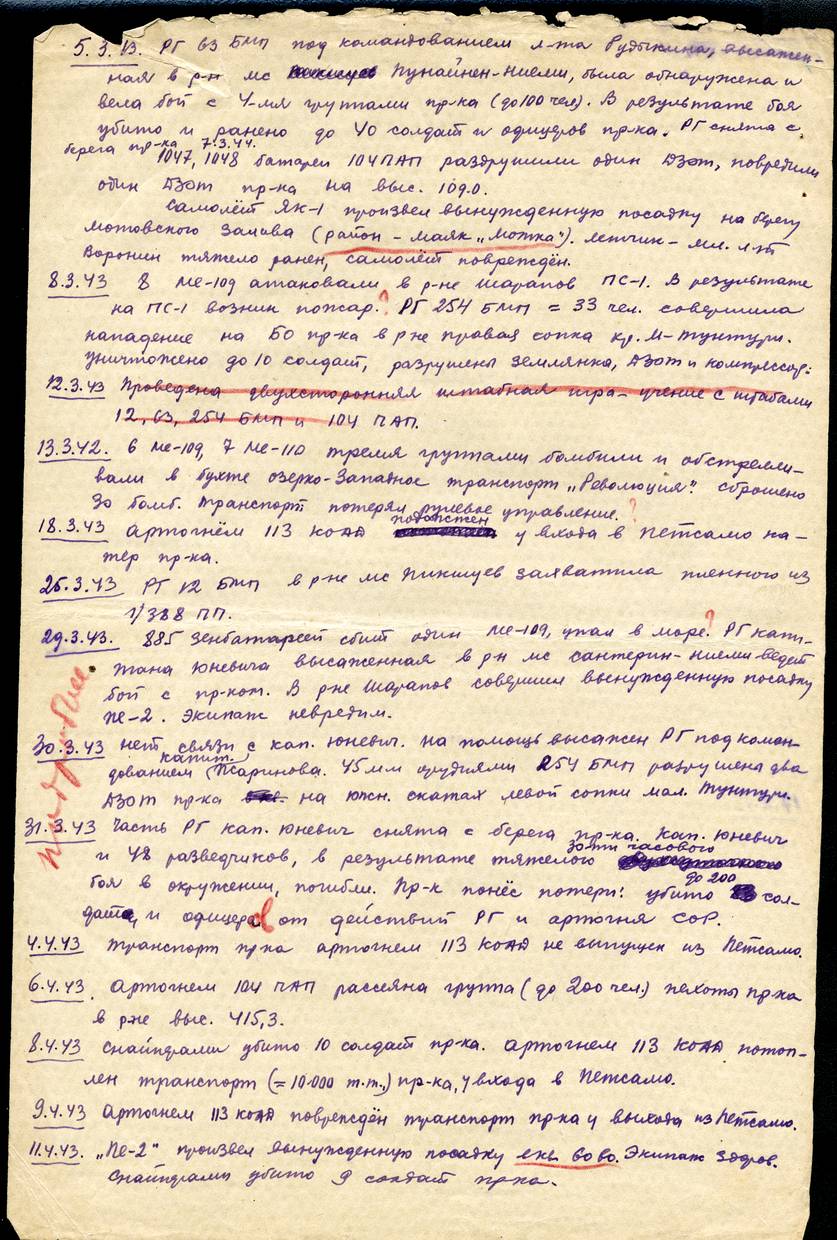 5.3.43. РГ 63 БМП под командованием л-та Рудыкина, высажен-
ная в р-н мс Пунайнен-Ниеми, была обнаружена и
вела бой с 4-мя группами пр-ка (до 100 чел). В результате боя
убито и ранено до 40 солдат и офицеров пр-ка. РГ снята с
берега пр-ка 7.3.44.
1047, 1048 батареи 104 ПАП разрушили один ДЗОТ, повредили
один ДЗОТ пр-ка на выс. 109.0.
Самолёт Як-1 произвел вынужденную посадку на берегу
Мотовского залива (район - маяк „Мотка"). Летчик - мл. л-т
Воронин тяжело ранен, самолёт повреждён.
8.3.43 8 Ме-109 атаковали в р-не Шарапов ПС-1. В результате
на ПС-1 возник пожар.? РГ 254 БМП = 33 чел. совершила
нападение на БО пр-ка в р-не правая сопка хр. М-Тунтури.
Уничтожено до 10 солдат, разрушены землянка, ДЗОТ и компрессор.
12.3.43 Проведена двухсторонняя штабная игра - учение с штабами
12, 63, 254 БМП и 104 ПАП.
13.3.42. 6 Ме-109, 7 Ме-110 тремя группами бомбили и обстрели-
вали в бухте Озерко-Западное транспорт „Революция". Сброшено
30 бомб. Транспорт потерял рулевое управление.?
18.3.43 Артогнём 113 КОАД подожжен у входа в Петсамо ка-
тер пр-ка.
25.3.43 РГ 12 БМП в р-не мс Пикшуев захватила пленного из
1/388 ПП.
29.3.43. 885 зенбатареей сбит один Ме-109, упал в море.? РГ капи-
тана Юневича высаженная в р-н мс Сантерин-Ниеми ведет
бой с пр-ком. В р-не Шарапов совершил вынужденную посадку
Пе-2. Экипаж невредим.
подробнее
30.3.43 Нет связи с кап. Юневич. На помощь высажен РГ под коман-
дованием капит. Жаринова. 45 мм орудиями 254 БМП разрушены два
ДЗОТ пр-ка на южн. скатах левой сопки мал. Тунтури.
31.3.43 Часть РГ кап. Юневич снята с берега пр-ка. Кап. Юневич
и 48 разведчиков, в результате тяжелого 30-ти часового
боя в окружении, погибли. Пр-к понёс потери: убито до 200 сол-
дат и офицеров от действий РГ и артогня СОР.
4.4.43 Транспорт пр-ка артогнем 113 КОАД не выпущен из Петсамо.
6.4.43. Артогнем 104 ПАП рассеяна группа (до 200 чел.) пехоты пр-ка
в р-не выс. 415,3.
8.4.43 Снайперами убито 10 солдат пр-ка. Артогнем 113 КОАД потоп-
лен транспорт (= 10.000 т.т.) пр-ка, у входа в Петсамо.
9.4.43 Артогнем 113 КОАД повреждён транспорт пр-ка у выхода из Петсамо.
11.4.43. „Пе-2" произвел вынужденную посадку Экипаж здоров.
Снайперами убито 9 солдат пр-ка.